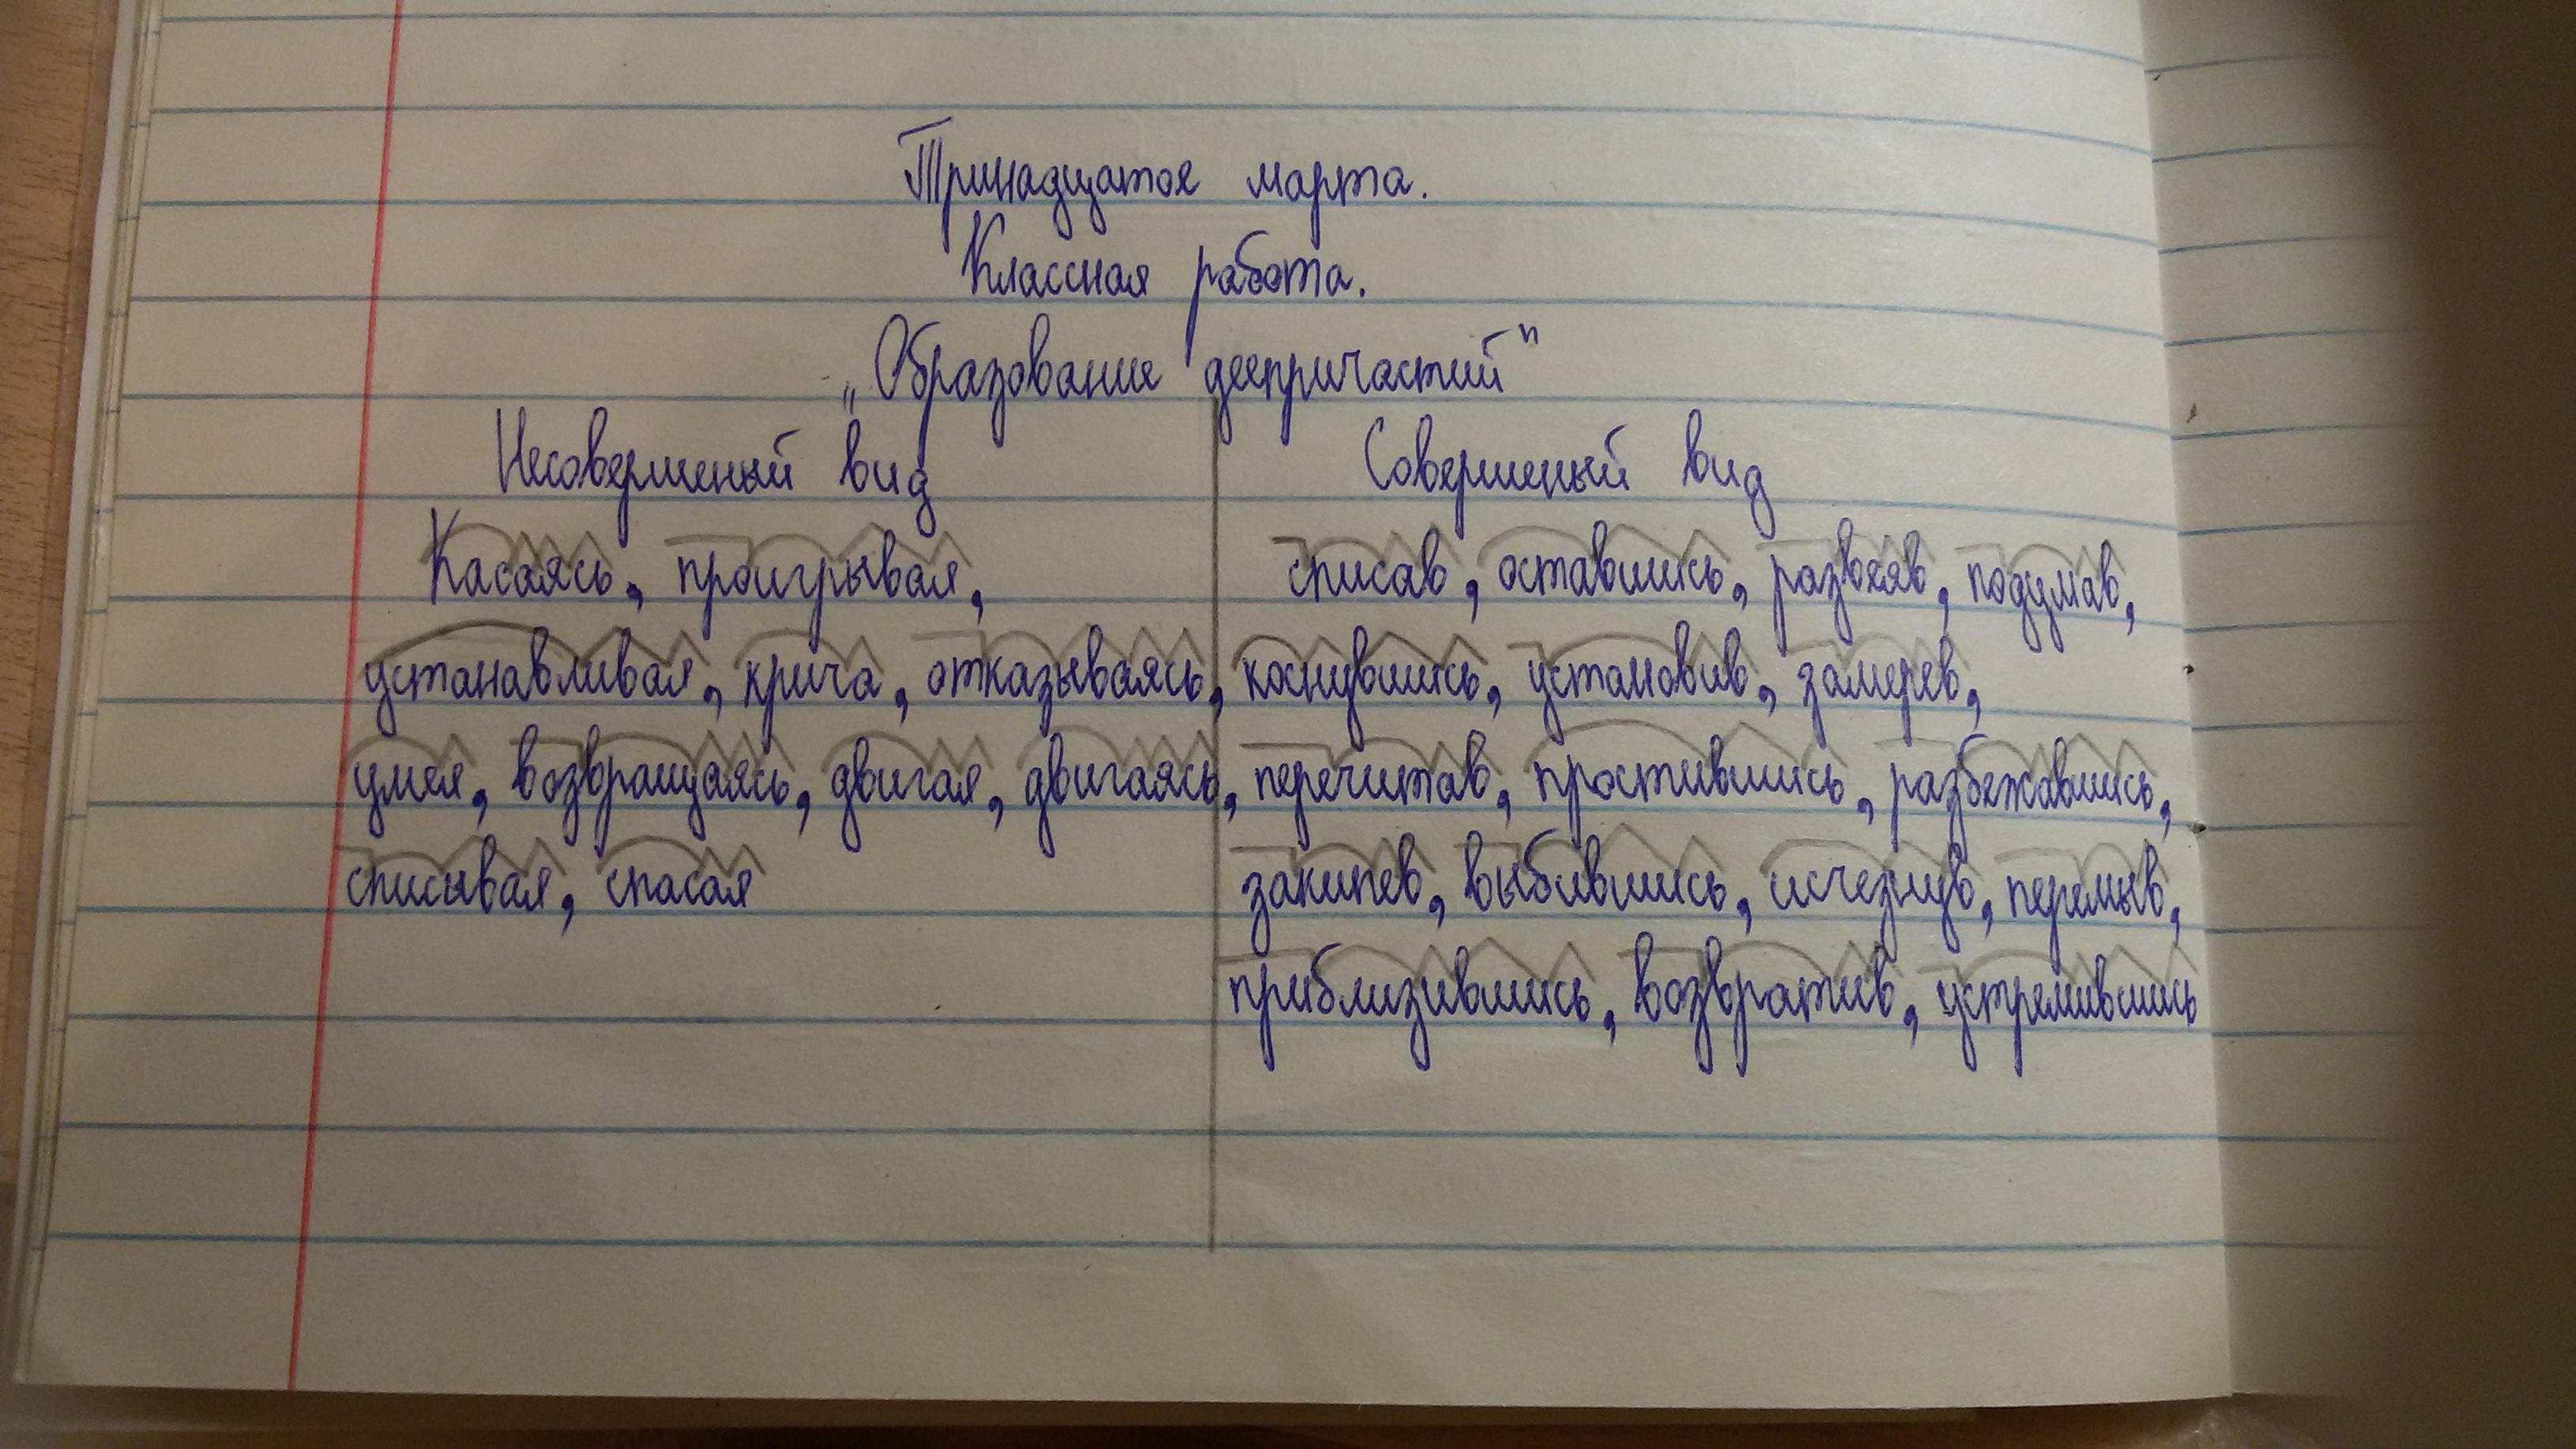 Тринадцатое марта.
Классная работа.
„Образование деепричастий"
Несовершеный вид
Касаясь, проигрывая,
устанавливая, крича, отказываясь,
умея, возвращаясь, двигая, двигаясь,
списывая, спасая
Совершеный вид
списав, оставшись, развеяв, подумав,
коснувшись, установив, замерев,
перечитав, простившись, разбежавшись,
закипев, выбившись, исчезнув, перемыв,
приблизившись, возвратив, устремившись